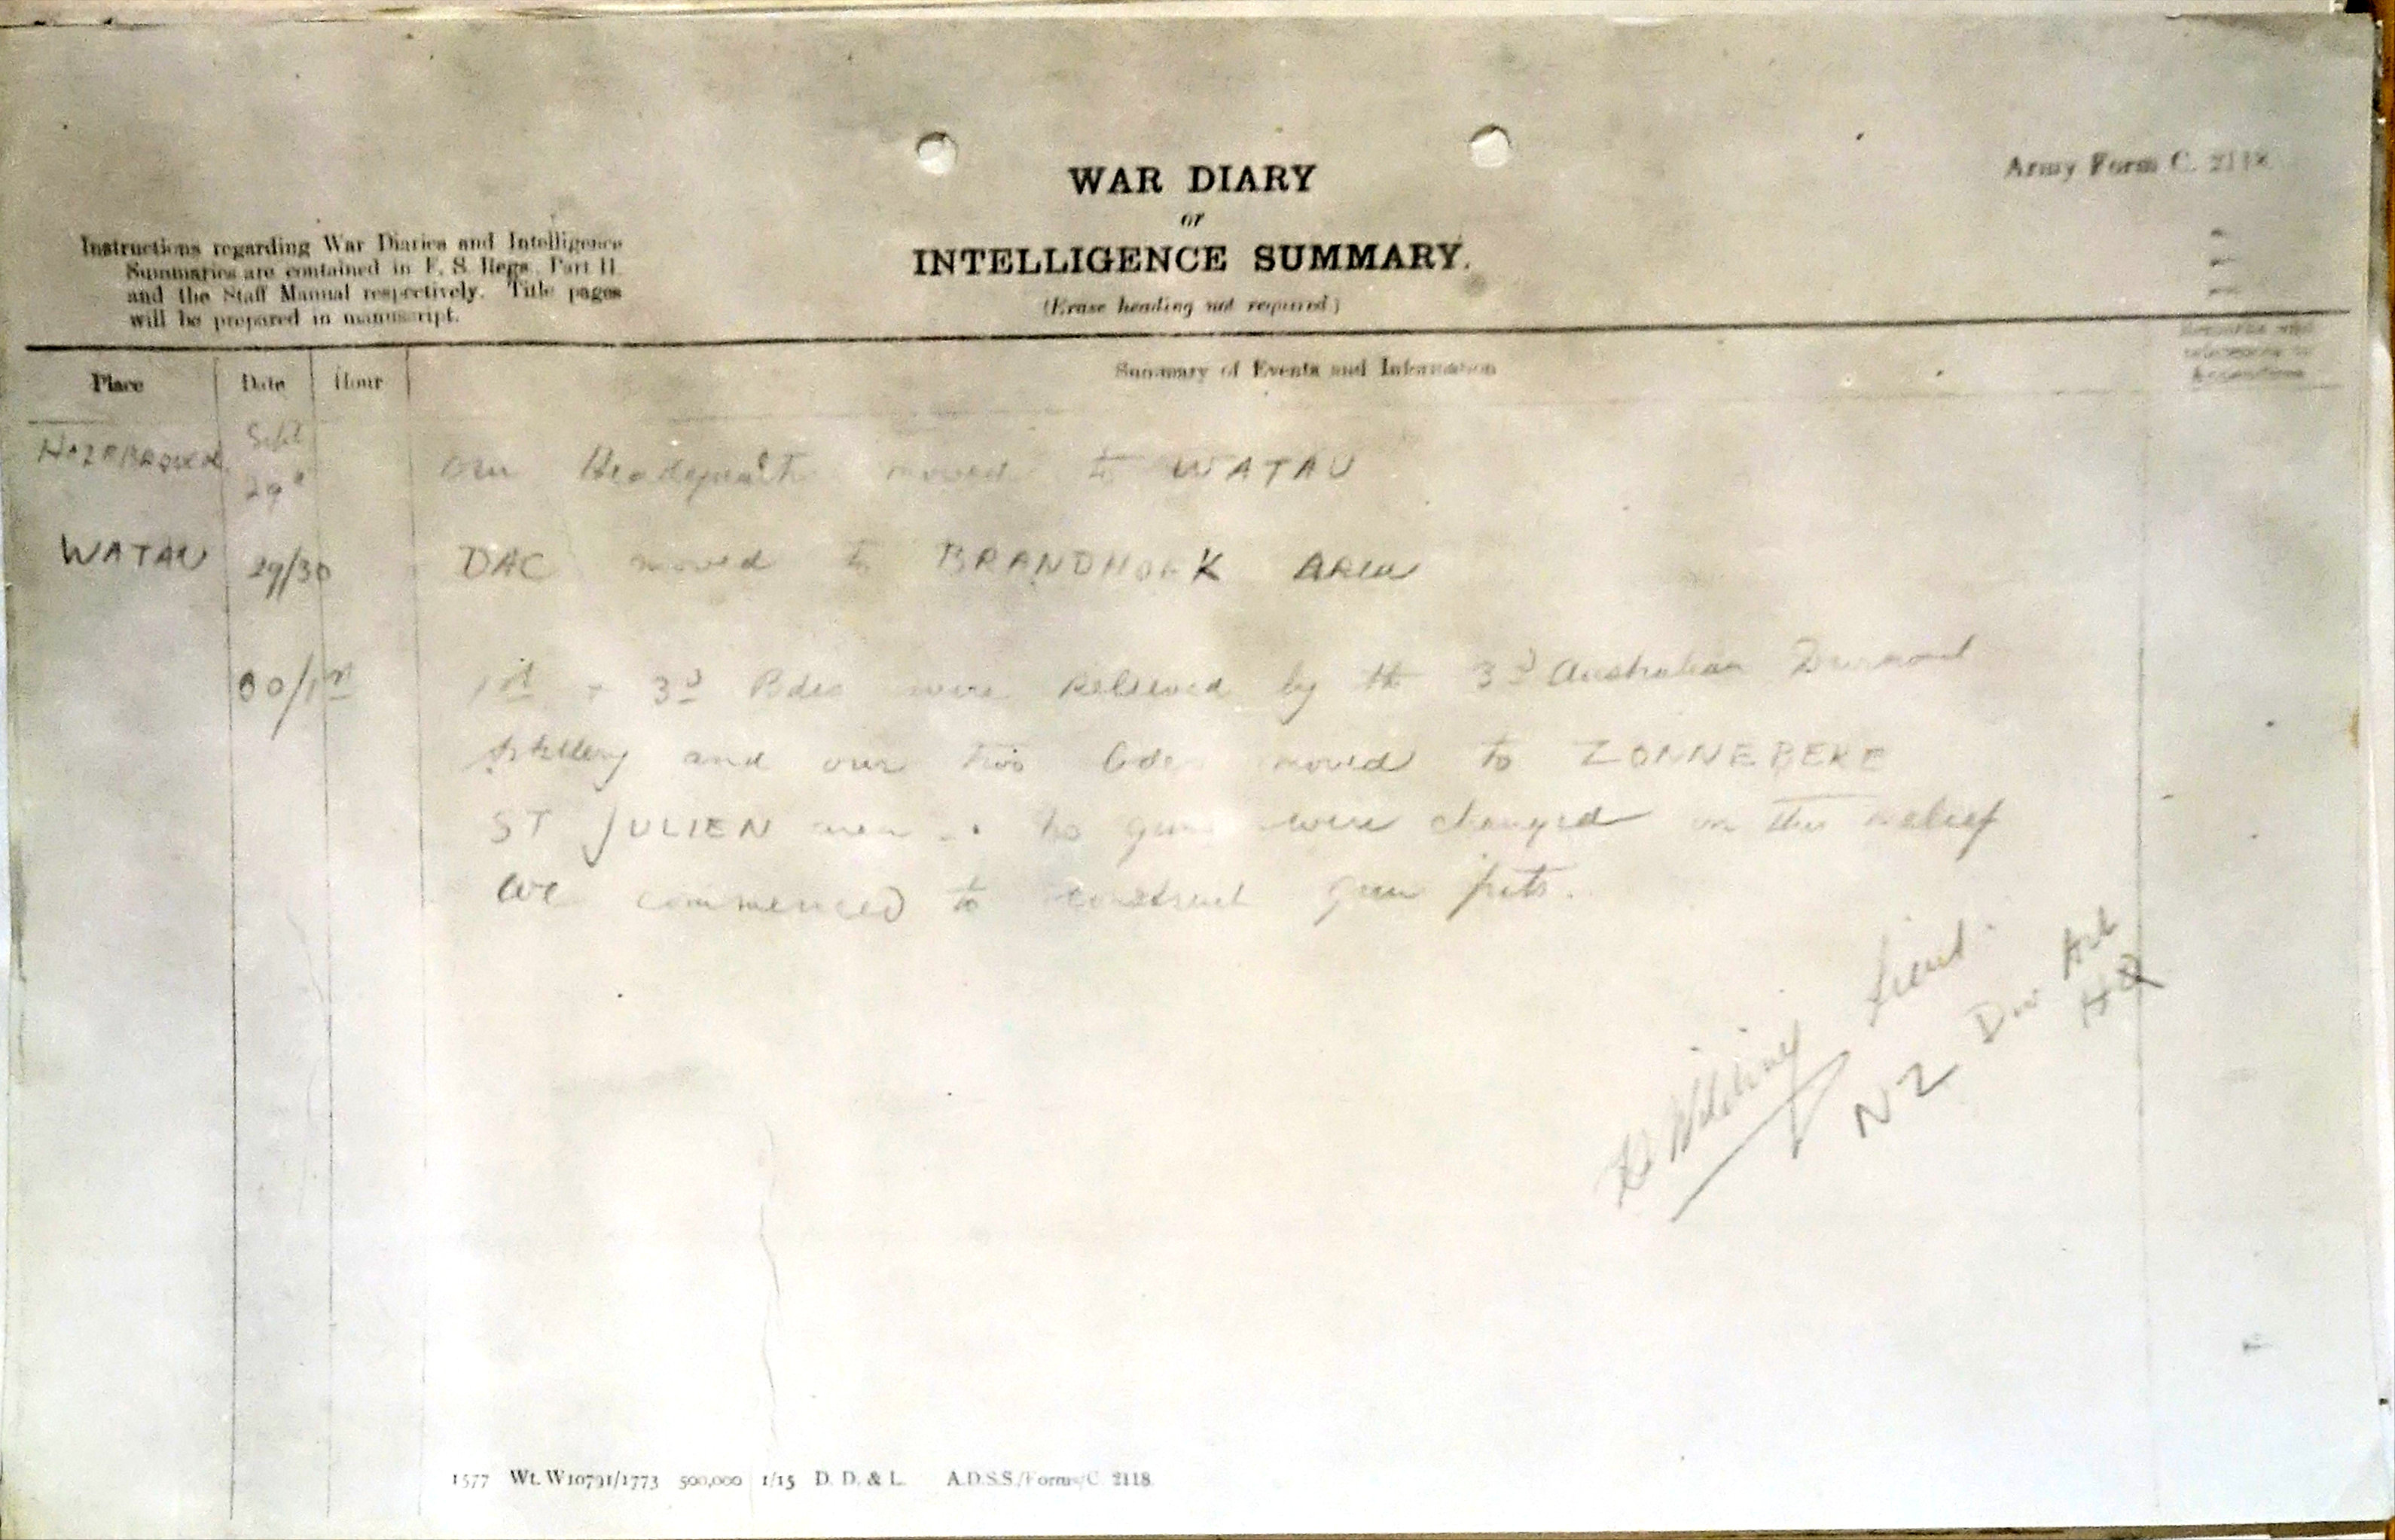 Army Form C. 2118.
WAR DIARY
or
INTELLIGENCE SUMMARY.
(Erase heading not required.)
Instructions regarding War Diaries and Intelligence
Summaries are contained in F. S. Regs., Part II.
and the Staff Manual respectively. Title pages
will be prepared in manuscript.
Place Date Hour Summary of Events and Information
Remarks and
references to
Appendices
HAZEBROUCK Sept
29th our Headquarts moved to WATAU
WATAU 29/30 DAC moved to BRANDHOEK AREA
30/1st 1st + 3d Bdes were relieved by the 3d Australian Divisional
Artillery and our two bdes moved to ZONNEBEKE
ST JULIEN area . no guns were changed in this relief
We commenced to construct gun pits.
Wilding Lieut.
NZ Div Art
HQ
1577 Wt. W10791/1773 500,000 1/15 D. D. & L. A.D.S.S./Forms/C. 2118.